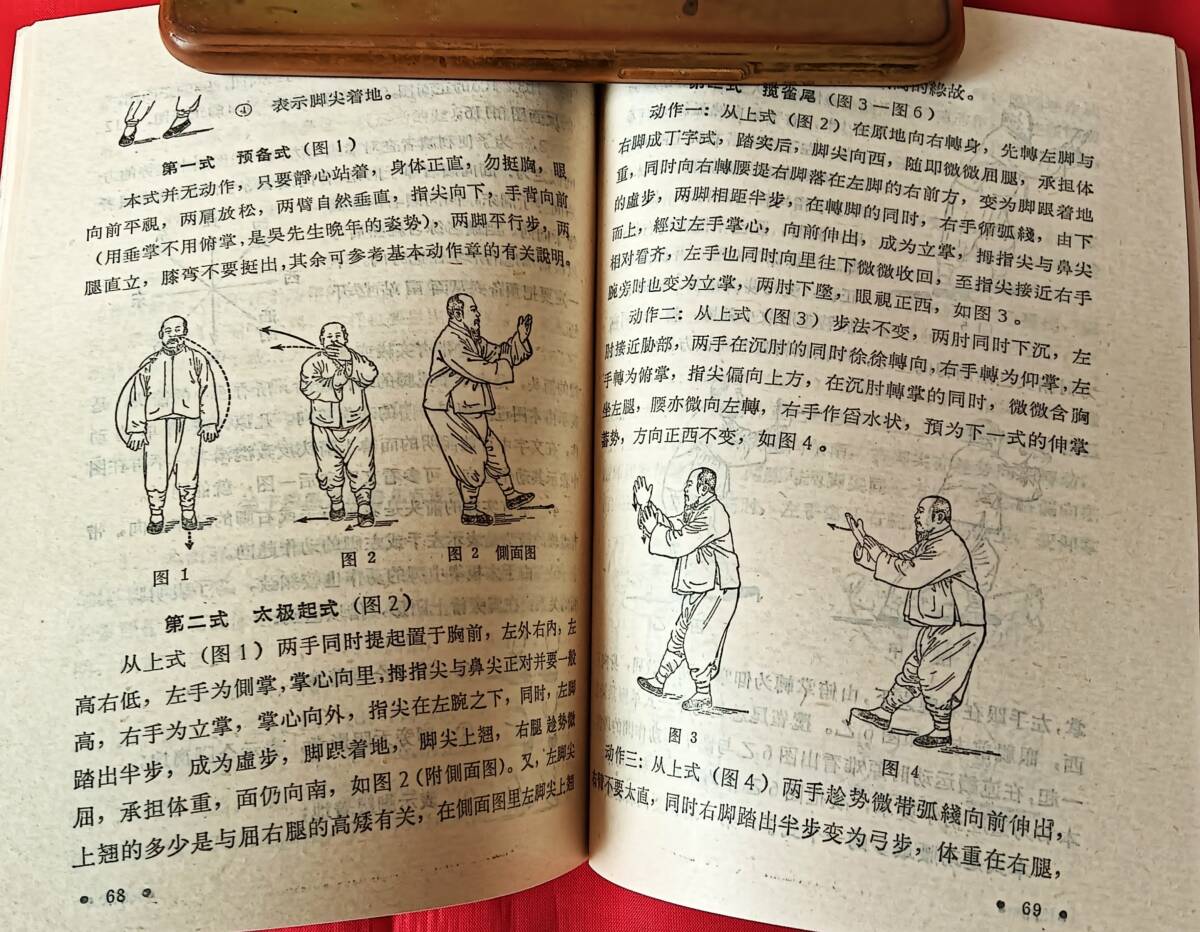 ④ 表示脚尖着地。
第一式 预备式(图1)
本式并无动作,只要靜心站着,身体正直,勿挺胸,眼
向前平視,两肩放松,两臂自然垂直,指尖向下,手背向前
(用垂掌不用俯掌,是吳先生晚年的姿势),两脚平行步,两
腿直立,膝弯不要挺出,其余可参考基本动作章的有关說明。
图1
图2
图2 側面图
第二式 太极起式(图2)
从上式(图1)两手同时提起置于胸前,左外右內,左
高右低,左手为側掌,掌心向里,拇指尖与鼻尖正对并要一般
高,右手为立掌,掌心向外,指尖在左腕之下,同时,左脚
踏出半步,成为虛步,脚跟着地,脚尖上翘,右腿趁势微
屈,承担体重,面仍向南,如图2(附側面图)。又,左脚尖
上翘的多少是与屈右腿的高矮有关,在側面图里左脚尖上翘
• 68 •
的緣故。
攬雀尾(图3—图6)
动作一:从上式(图2)在原地向右轉身,先轉左脚与
右脚成丁字式,踏实后,脚尖向西,随即微微屈腿,承担体
重,同时向右轉腰提右脚落在左脚的右前方,变为脚跟着地
的虛步,两脚相距半步,在轉脚的同时,右手循弧綫,由下
而上,經过左手掌心,向前伸出,成为立掌,拇指尖与鼻尖
相对看齐,左手也同时向里往下微微收回,至指尖接近右手
腕旁时也变为立掌,两肘下墜,眼視正西,如图3。
动作二:从上式(图3)步法不变,两肘同时下沉,左
肘接近胁部,两手在沉肘的同时徐徐轉向,右手轉为仰掌,左
手轉为俯掌,指尖偏向上方,在沉肘轉掌的同时,微微含胸
坐左腿,腰亦微向左轉,右手作舀水状,預为下一式的伸掌
蓄势,方向正西不变,如图4。
图3
图4
动作三:从上式(图4)两手趁势微带弧綫向前伸出,
右臂不要太直,同时右脚踏出半步变为弓步,体重在右腿,
• 69 •